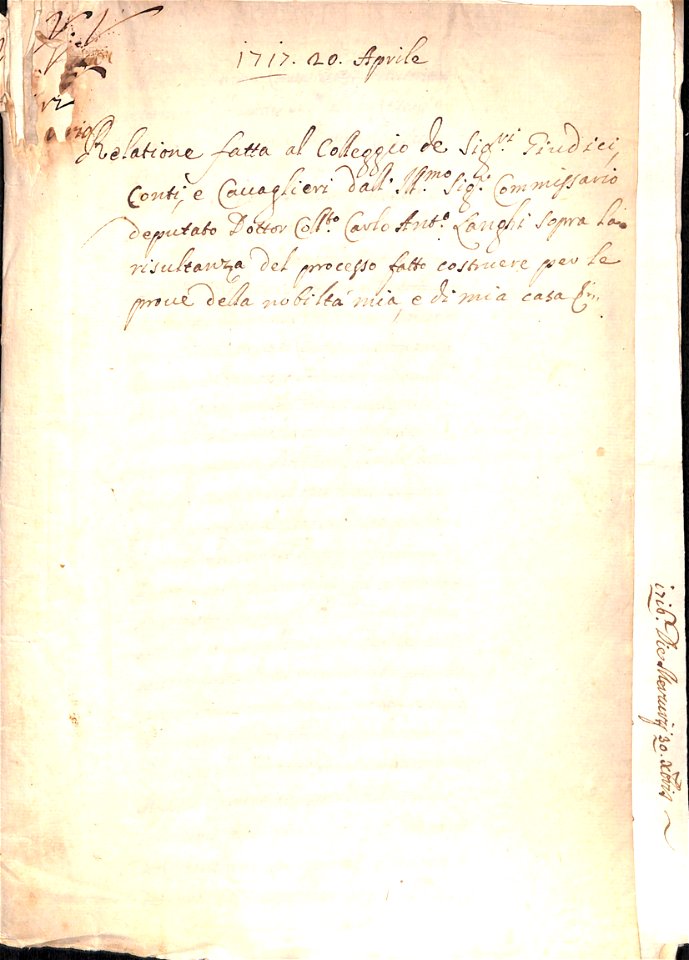 1717. 20. Aprile
Relatione fatta al Colleggio de Sig.ri Giudici,
Conti, e Cauaglieri dall' Ill.mo Sig.r Commissario
deputato Dottor Coll.to Carlo Ant.o Langhi sopra la
risultanza del processo fatto costruere per le
proue della nobiltà mia, e di mia casa
1716. Die Mercurij 30. Xbris